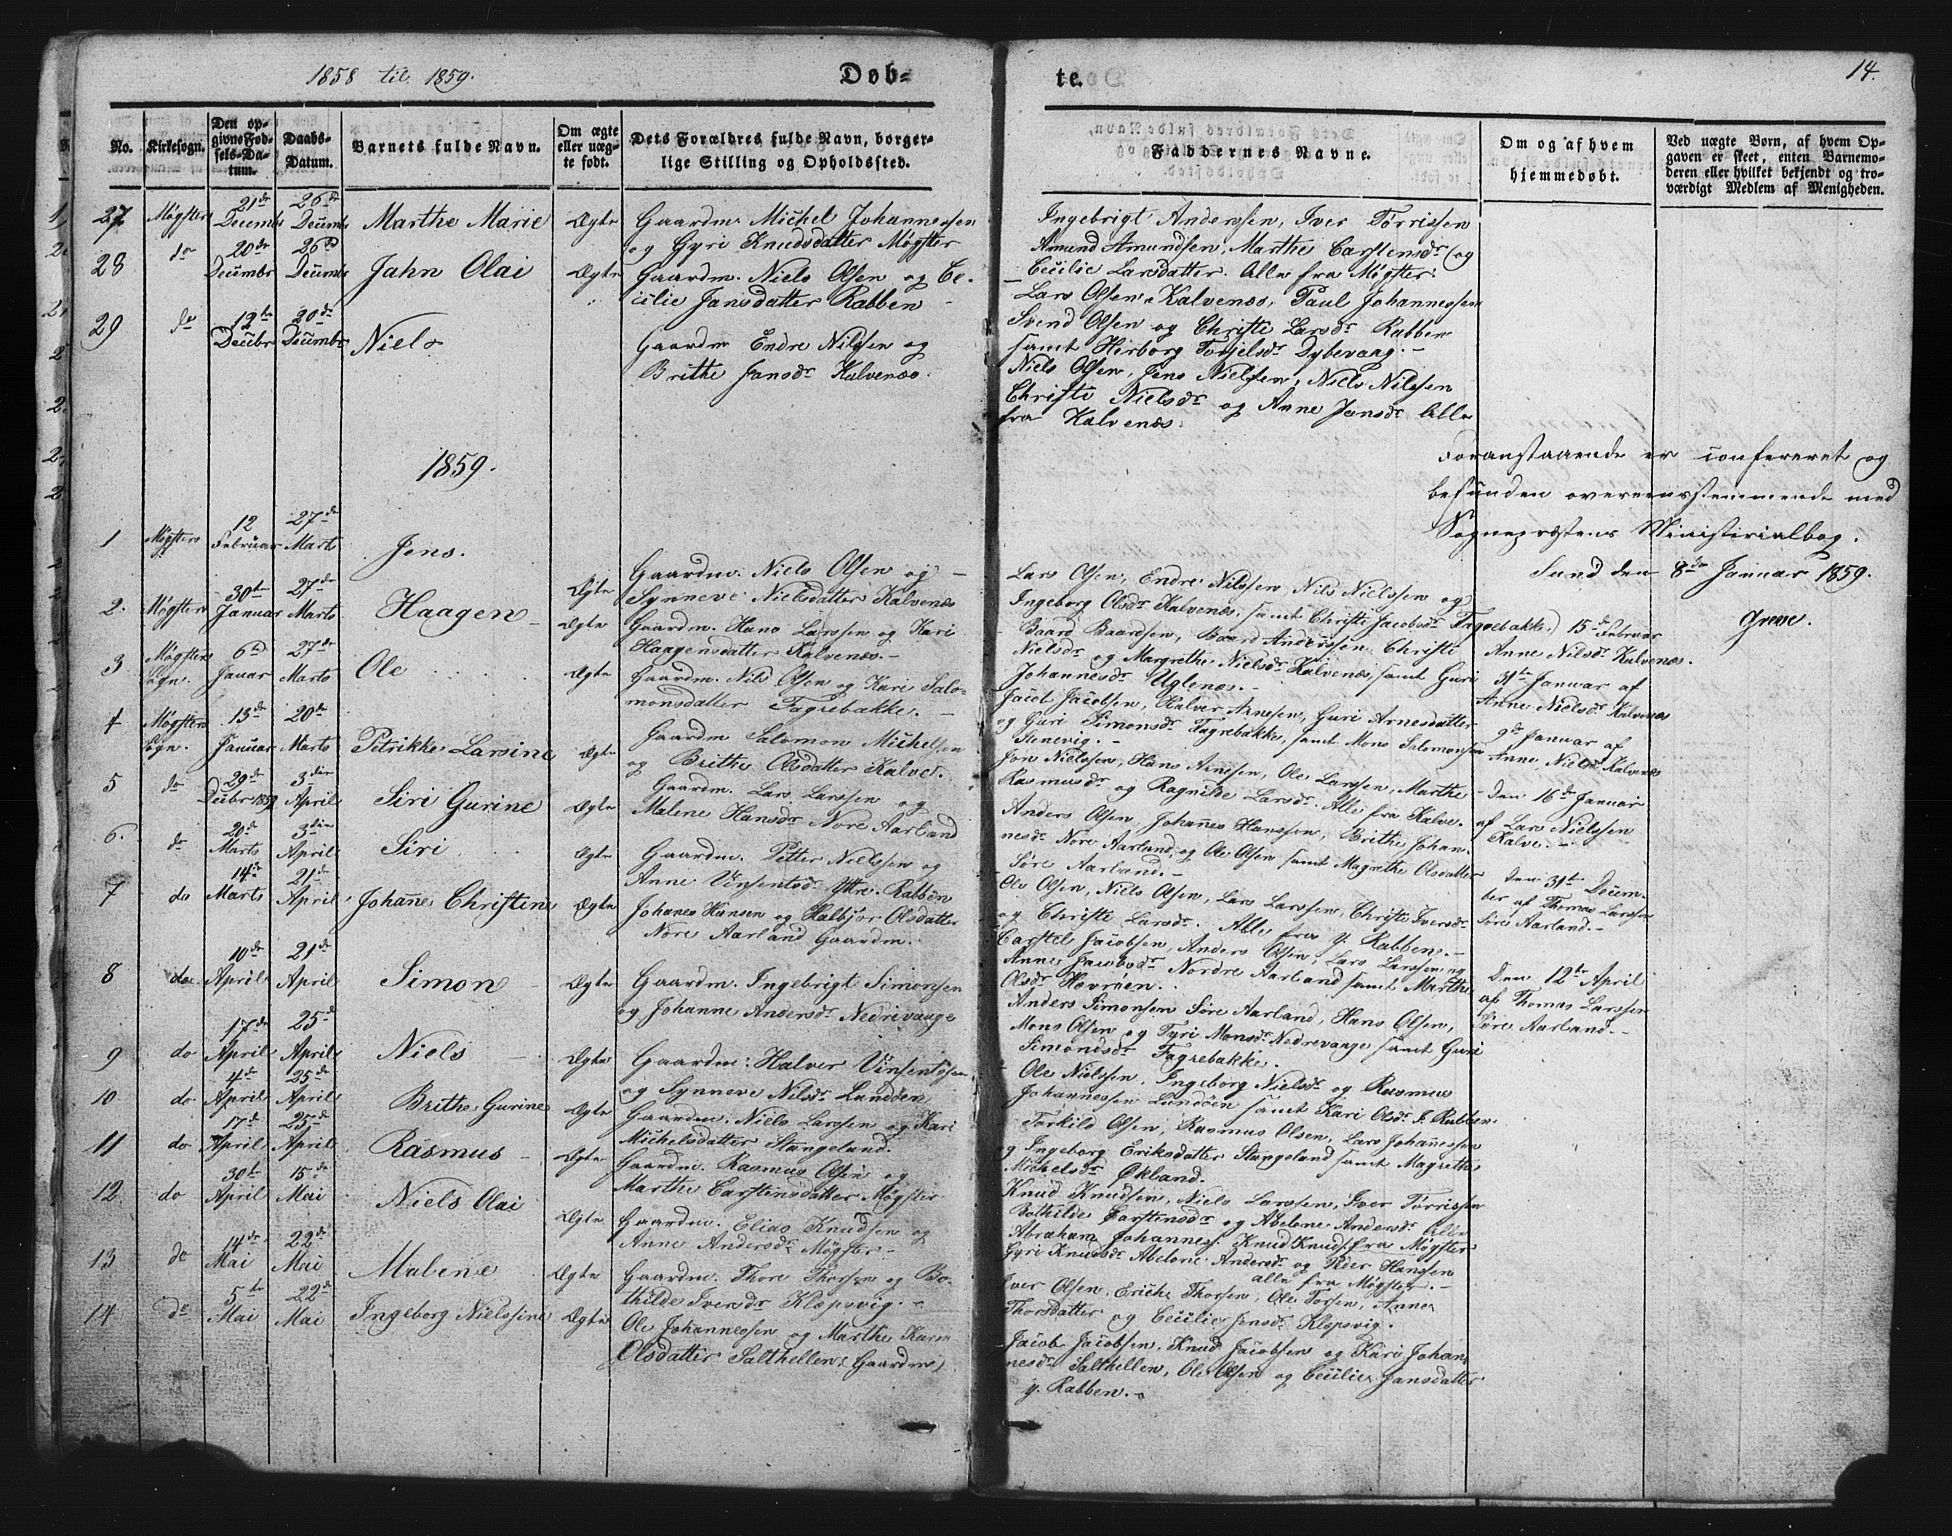 1858 til 1859.
Døb-
te.
14.
No.
Kirkesogn.
Den op-
givne Fød-
sels-Da-
tum.
Daabs-
Datum.
Barnets fulde Navn.
Om ægte
eller uæg-
te født.
Dets Forældres fulde Navn, borger-
lige Stilling og Opholdssted.
Faddernes Navne.
Om og af hvem
hjemmedøbt.
Ved uægte Børn, af hvem Op-
gaven er skeet, enten Barnemo-
deren eller hvilket bekjendt og tro-
værdigt Medlem af Menigheden.
27 Møgster 21de Decembr 26de Decembr Marthe Marie Ægte Gaardm. Michel Johannessen
og Gyri Knudsdatter Møgster
Ingebrigt Anderssen, Iver Tørrissen
Amund Amundsen, Marthe Carstensdr og
Cecilie Larsdatter. Alle fra Møgster.
28 do 20de Decembr 26de Decembr Jahn Olai Ægte Gaardm. Niels Olsen og Ce-
cilie Jansdatter Rabben
Lars Olsen Kalvenæs, Paul Johannessen
Svend Olsen og Christi Larsdr Rabben
samt Herborg Torjelsdr Dybevaag.
29 do 12te Decbr 20de Decembr Niels
Gaardm Endre Nilssen og
Brithe Jansdr Kalvenæs.
Niels Olsen, Jens Nielssen, Niels Nilssen
Christi Nielsdr og Anne Jensdr Alle
fra Kalvenæs.
1859.
Foranstaaende er confereret og
befunden overeensstemmende med
Sognepræstens Ministerialbog.
Sund den 8de Januar 1859.
Greve.
1 Møgsters 12 Februar 27de Marts Jens. Ægte
Gaardm. Niels Olsen og
Synneve Nielsdatter Kalvenæs
Lars Olsen, Endre Nilssen, Nils Nielssen og
Ingeborg Olsdr Kalvenæs, samt Christi Jacobsdr Fagrebakke.
15de Februar
Anne Nilsdr Kalvenæs.
2. Møgsters 30te Januar 27de Marts Haagen Ægte
Gaardm. Hans Larssen og Kari
Haagensdatter Kalvenæs.
Baard Baardsen, Baard Anderssen, Christi
Nielsdr og Margrethe Nielsdr Kalvenæs, samt Guri
Johannesdr Uglenæs.
31te Januar af
Anne Nielsdr Kalvenæs
3 Møgsters Sogn. 6te Januar 27de Marts Ole Ægte
Gaardm. Nils Olsen og Kari Salo-
monsdatter Fagrebakke.
Jacob Jacobsen, Halver Arnesen, Guri Arnesdatter
og Guri Simonsdr Fagrebakke, samt Mons Salomonsen
9de Januar af
Anne Nielsdr Kalvenæs
4 Møgsters Sogn. 13de Januar 20de Marts Petrikke Larsine Ægte
Gaardm Salomon Michelsen
og Brithe Olsdatter Kalve.
Jon Nielssen, Hans Arnesen, Ole Larssen, Marthe
Rasmusdr og Ragnilde Larsdr. Alle fra Kalve.
Den 16de Januar
af Lars Nielssen
Kalve.
5 do 29de Decbr 3die April Siri Gurine Ægte
Gaardm. Lars Larssen og
Malene Hansdr Nore Aarland
Anders Olsen, Johannes Hanssen, Brithe Johan-
nesdr Nore Aarland, og Ole Olsen samt Magrethe Olsdatter
Søre Aarland.
Den 31te Decem-
ber af Thomas Larssen
Søre Aarland.
6. do 20de Marts 3die April Siri Ægte
Gaardm. Petter Nielssen og
Anne Vinsentsdr Yttre Rabben
Ole Olsen, Niels Olsen, Lars Larssen, Christi Iversdr
og Christi Larsdr. Alle fra y. Rabben.
7 do 14de Marts 21de April Johanne Christine Ægte
Johanes Hansen og Halbjør Olsdatter
Nore Aarland Gaardm.
Carstel Jacobsen, Anders Olsen, Lars Larssen og
Anne Jacobsdr Nordre Aarland samt Marthe
Olsdr Hovrøen.
Den 12te April
af Thomas Larssen
Søre Aarland.
8 do 10de April 21de April Simon Ægte
Gaardm. Ingebrigt Simonsen
og Johanne Andersdr Nedrevaage
Anders Simonsen Søre Aarland, Hans Olsen,
Mons Olsen og Gyri Monsdr Nedrevaage samt Guri
Simonsdr Fagrebakke.
9 do 17de April 25de April Niels Ægte
Gaardm: Halver Vinsentsen
og Synneve Nilsdr Lundøen
Ole Nielssen, Ingeborg Nielsdr og Rasmus
Johannessen Lundøen samt Kari Olsdr I. Rabben
10 do 4de April 25de April Brithe Gurine Ægte
Gaardm. Niels Larssen og Kari
Michelsdatter Stangeland.
Torkild Olsen, Rasmus Olsen, Lars Johannessen
og Ingeborg Eriksdatter Stangeland samt Magrethe
Michelsdr Økland.
11 do 17de April 25de April Rasmus Ægte
Gaardm. Rasmus Olsen og
Marthe Carstensdatter Møgster
Knud Knudsen, Niels Larssen, Iver Tørrissen
Bothilde Carstensdr og Abelone Andersdr alle
fra Møgster
12 do 30te April 15de Mai Niels Olai Ægte
Gaardm. Elias Knudsen og
Anne Andersdr Møgster
Abraham Johanness. Knud Knuds.
Gyri Knudsdr Abelone Andersdr og Peder Hanssen
alle fra Møgster.
13 do 14de Mai 22de Mai Malene Ægte
Gaardm. Thore Thorsen og Bo-
thilde Iversdr Klepsvig.
Iver Olsen, Erich Thorsen, Ole Torsen, Anne
Thorsdatter og Cecilie Jensdr Klepsvig.
14 do 5te Mai 22de Mai Ingeborg Nielssine Ægte
Ole Johannessen og Marthe Karin
Olsdatter Salthellen (Gaardm)
Jacob Jacobsen, Knud Jacobsen og Kari Johan-
nesdr Salthellen, Ole Olsen og Cecilie Jansdatter
y. Rabben.